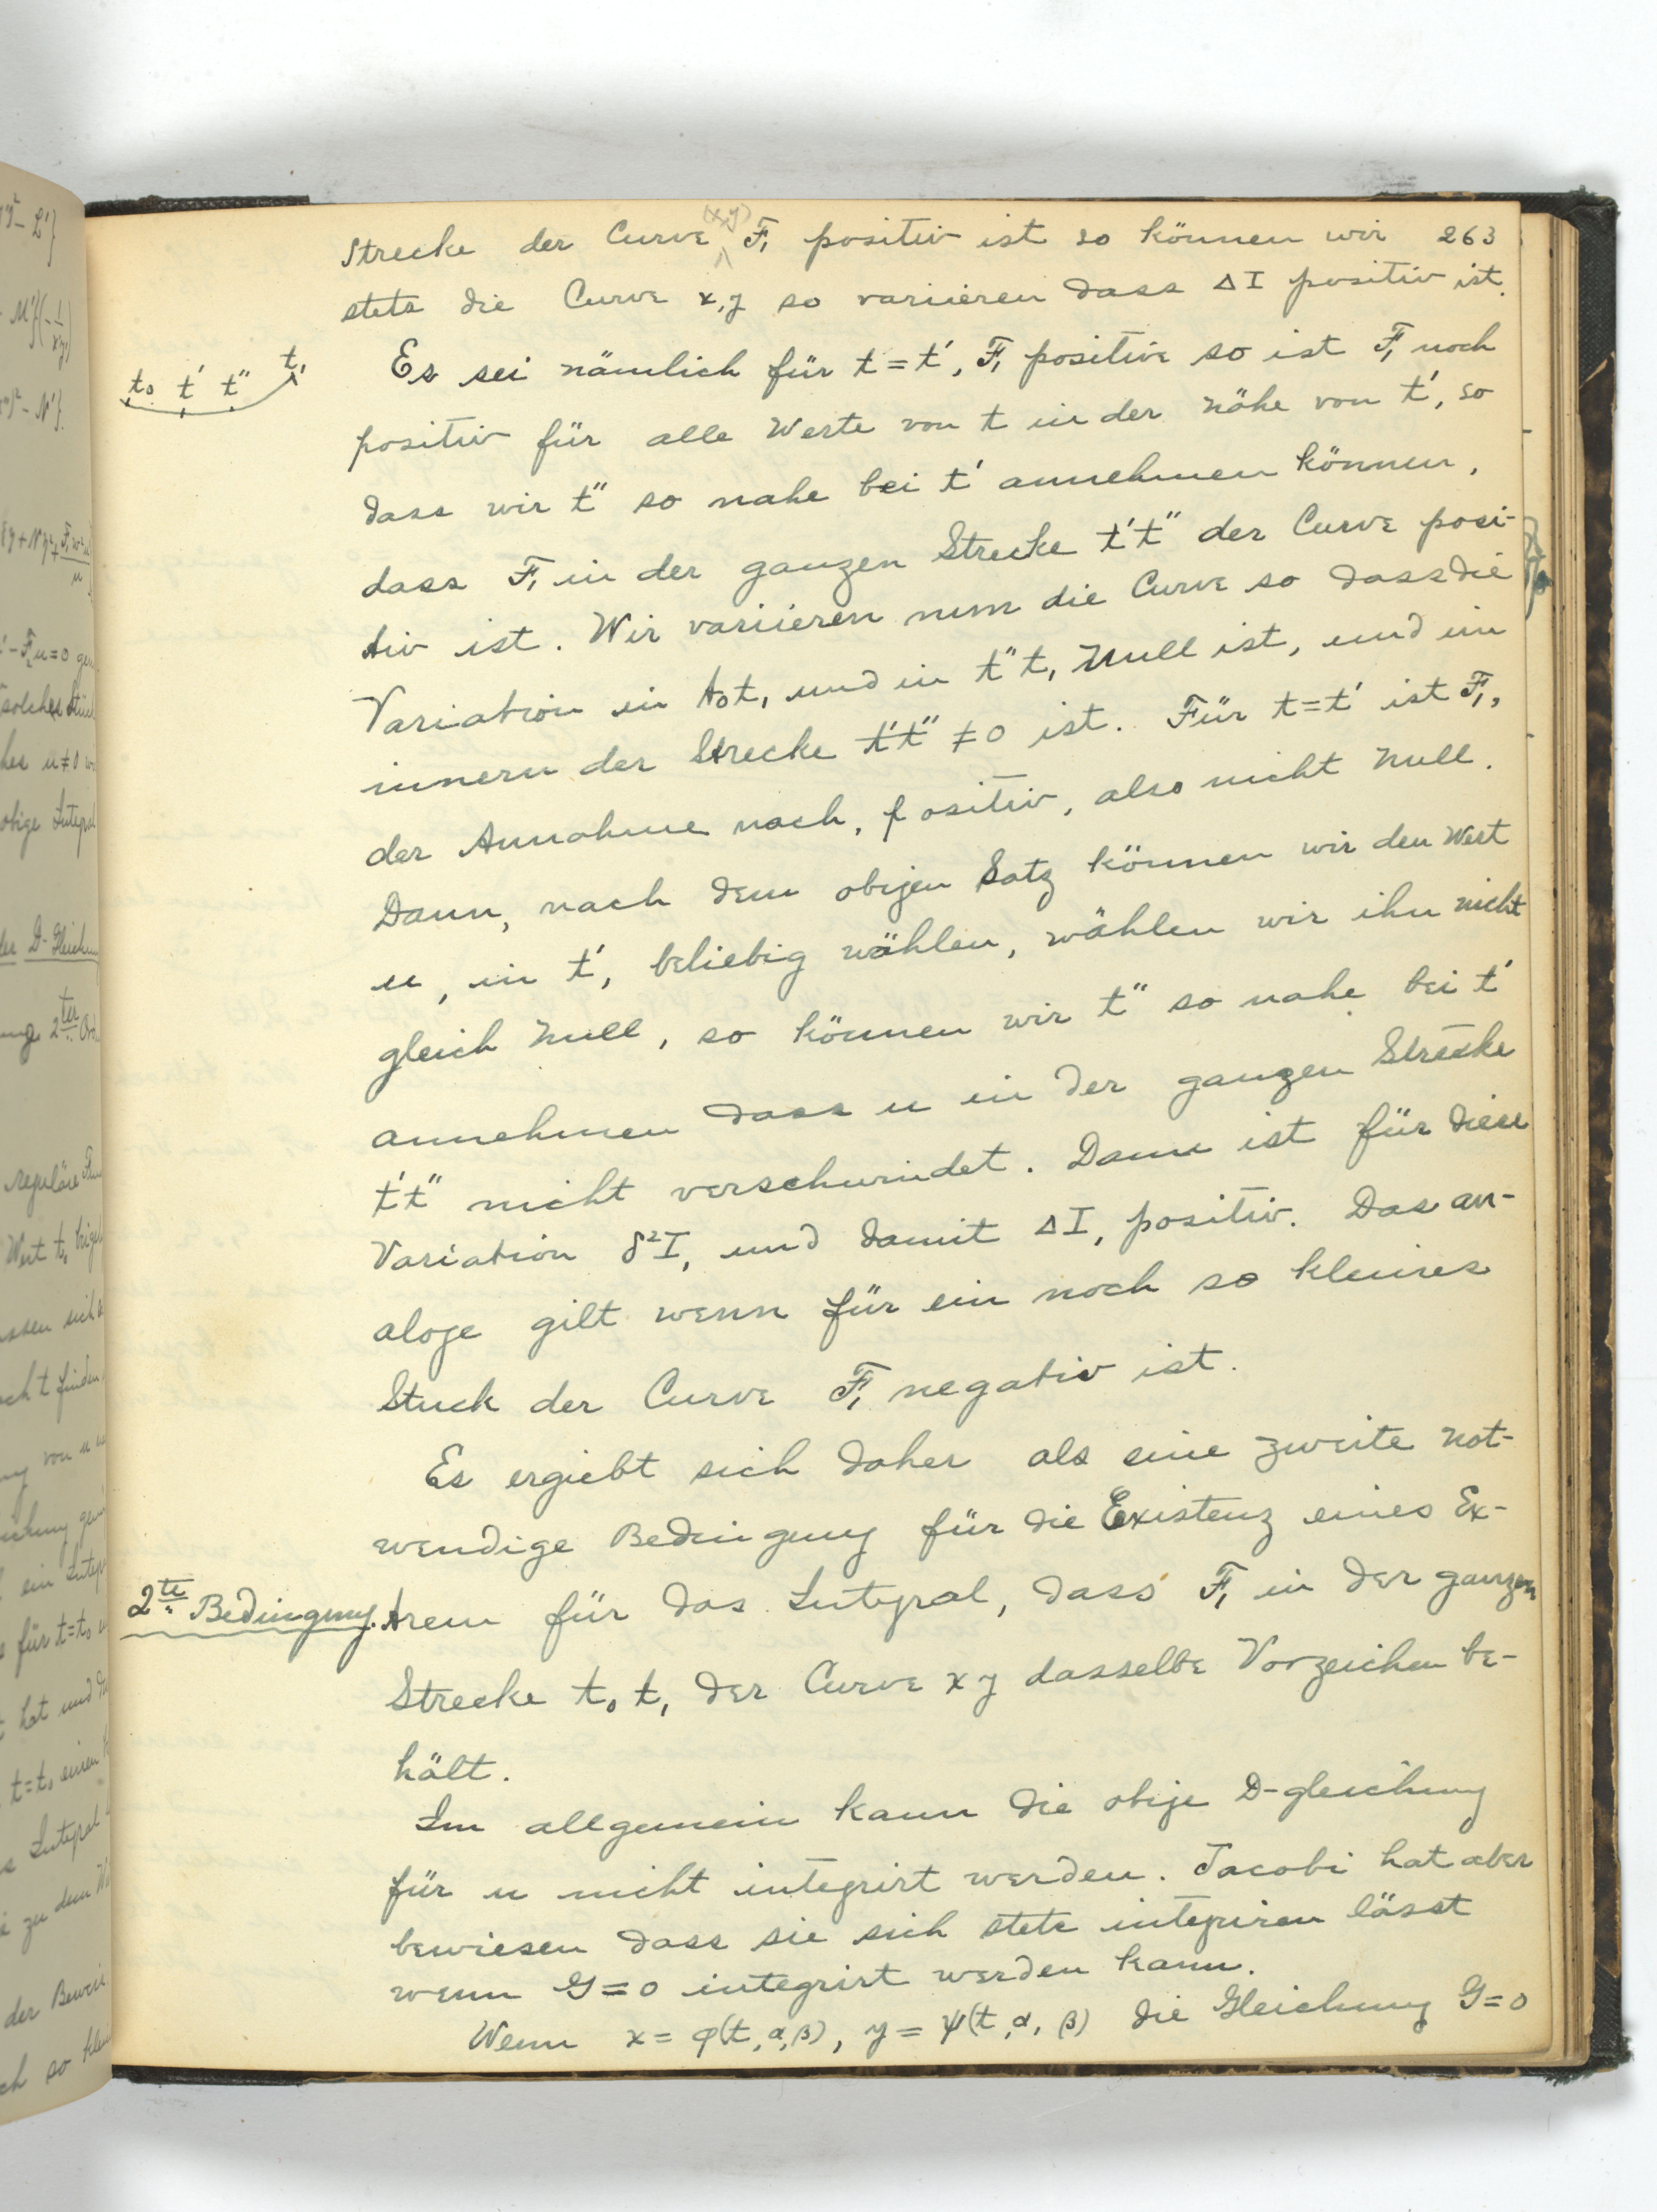 263
Strecke der Curve (x,y) F₁ positiv ist so können wir
stets die Curve x,y so variieren dass ΔI positiv ist.
t₀ t′ t″ t₁
Es sei nämlich für t=t′, F₁ positive so ist F₁ noch
positiv für alle Werte von t in der nähe von t′, so
dass wir t″ so nahe bei t′ annehmen können,
dass F₁ in der ganzen Strecke t′t″ der Curve posi-
tiv ist. Wir variieren nun die Curve so dass die
Variation in t₀t, und in t″t₁ Null ist, und im
innern der Strecke t′t″ ≠0 ist. Für t=t′ ist F₁,
der Annahme nach, positiv, also nicht Null.
Dann, nach dem obigen Satz können wir den Wert
u, in t′, beliebig wählen, wählen wir ihn nicht
gleich Null, so können wir t″ so nahe bei t′
annehmen dass u in der ganzen Strecke
t′t″ nicht verschwindet. Dann ist für diese
Variation δ²I, und damit ΔI, positiv. Das an-
aloge gilt wenn für ein noch so kleines
Stuck der Curve F₁ negativ ist.
Es ergiebt sich daher als eine zweite not-
wendige Bedingung für die Existenz eines Ex-
2te Bedingung.
trem für das Integral, dass F₁ in der ganzen
Strecke t₀t₁ der Curve xy dasselbe Vorzeichen be-
hält.
Im allgemein kann die obige D-gleichung
für u nicht integrirt werden. Jacobi hat aber
bewiesen dass sie sich stets integriren lässt
wenn G=0 integrirt werden kann.
Wenn x=φ(t,α,β), y=ψ(t,α,β) die Gleichung G=0